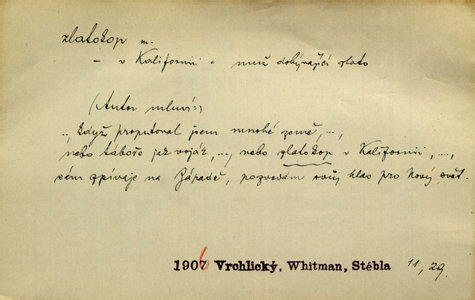 zlatokop m.
– v Kalifornii – muž dobývající zlato
(Autor mluví:)
„ Když proputoval jsem mnohé země, …,
nebo táboře jak voják, …, nebo zlatokop v Kalifornii, …,
sám zpívaje na Západě, pozvedám svůj hlas pro Nový svět.
1906 Vrchlický, Whitman, Stébla 11, 29.